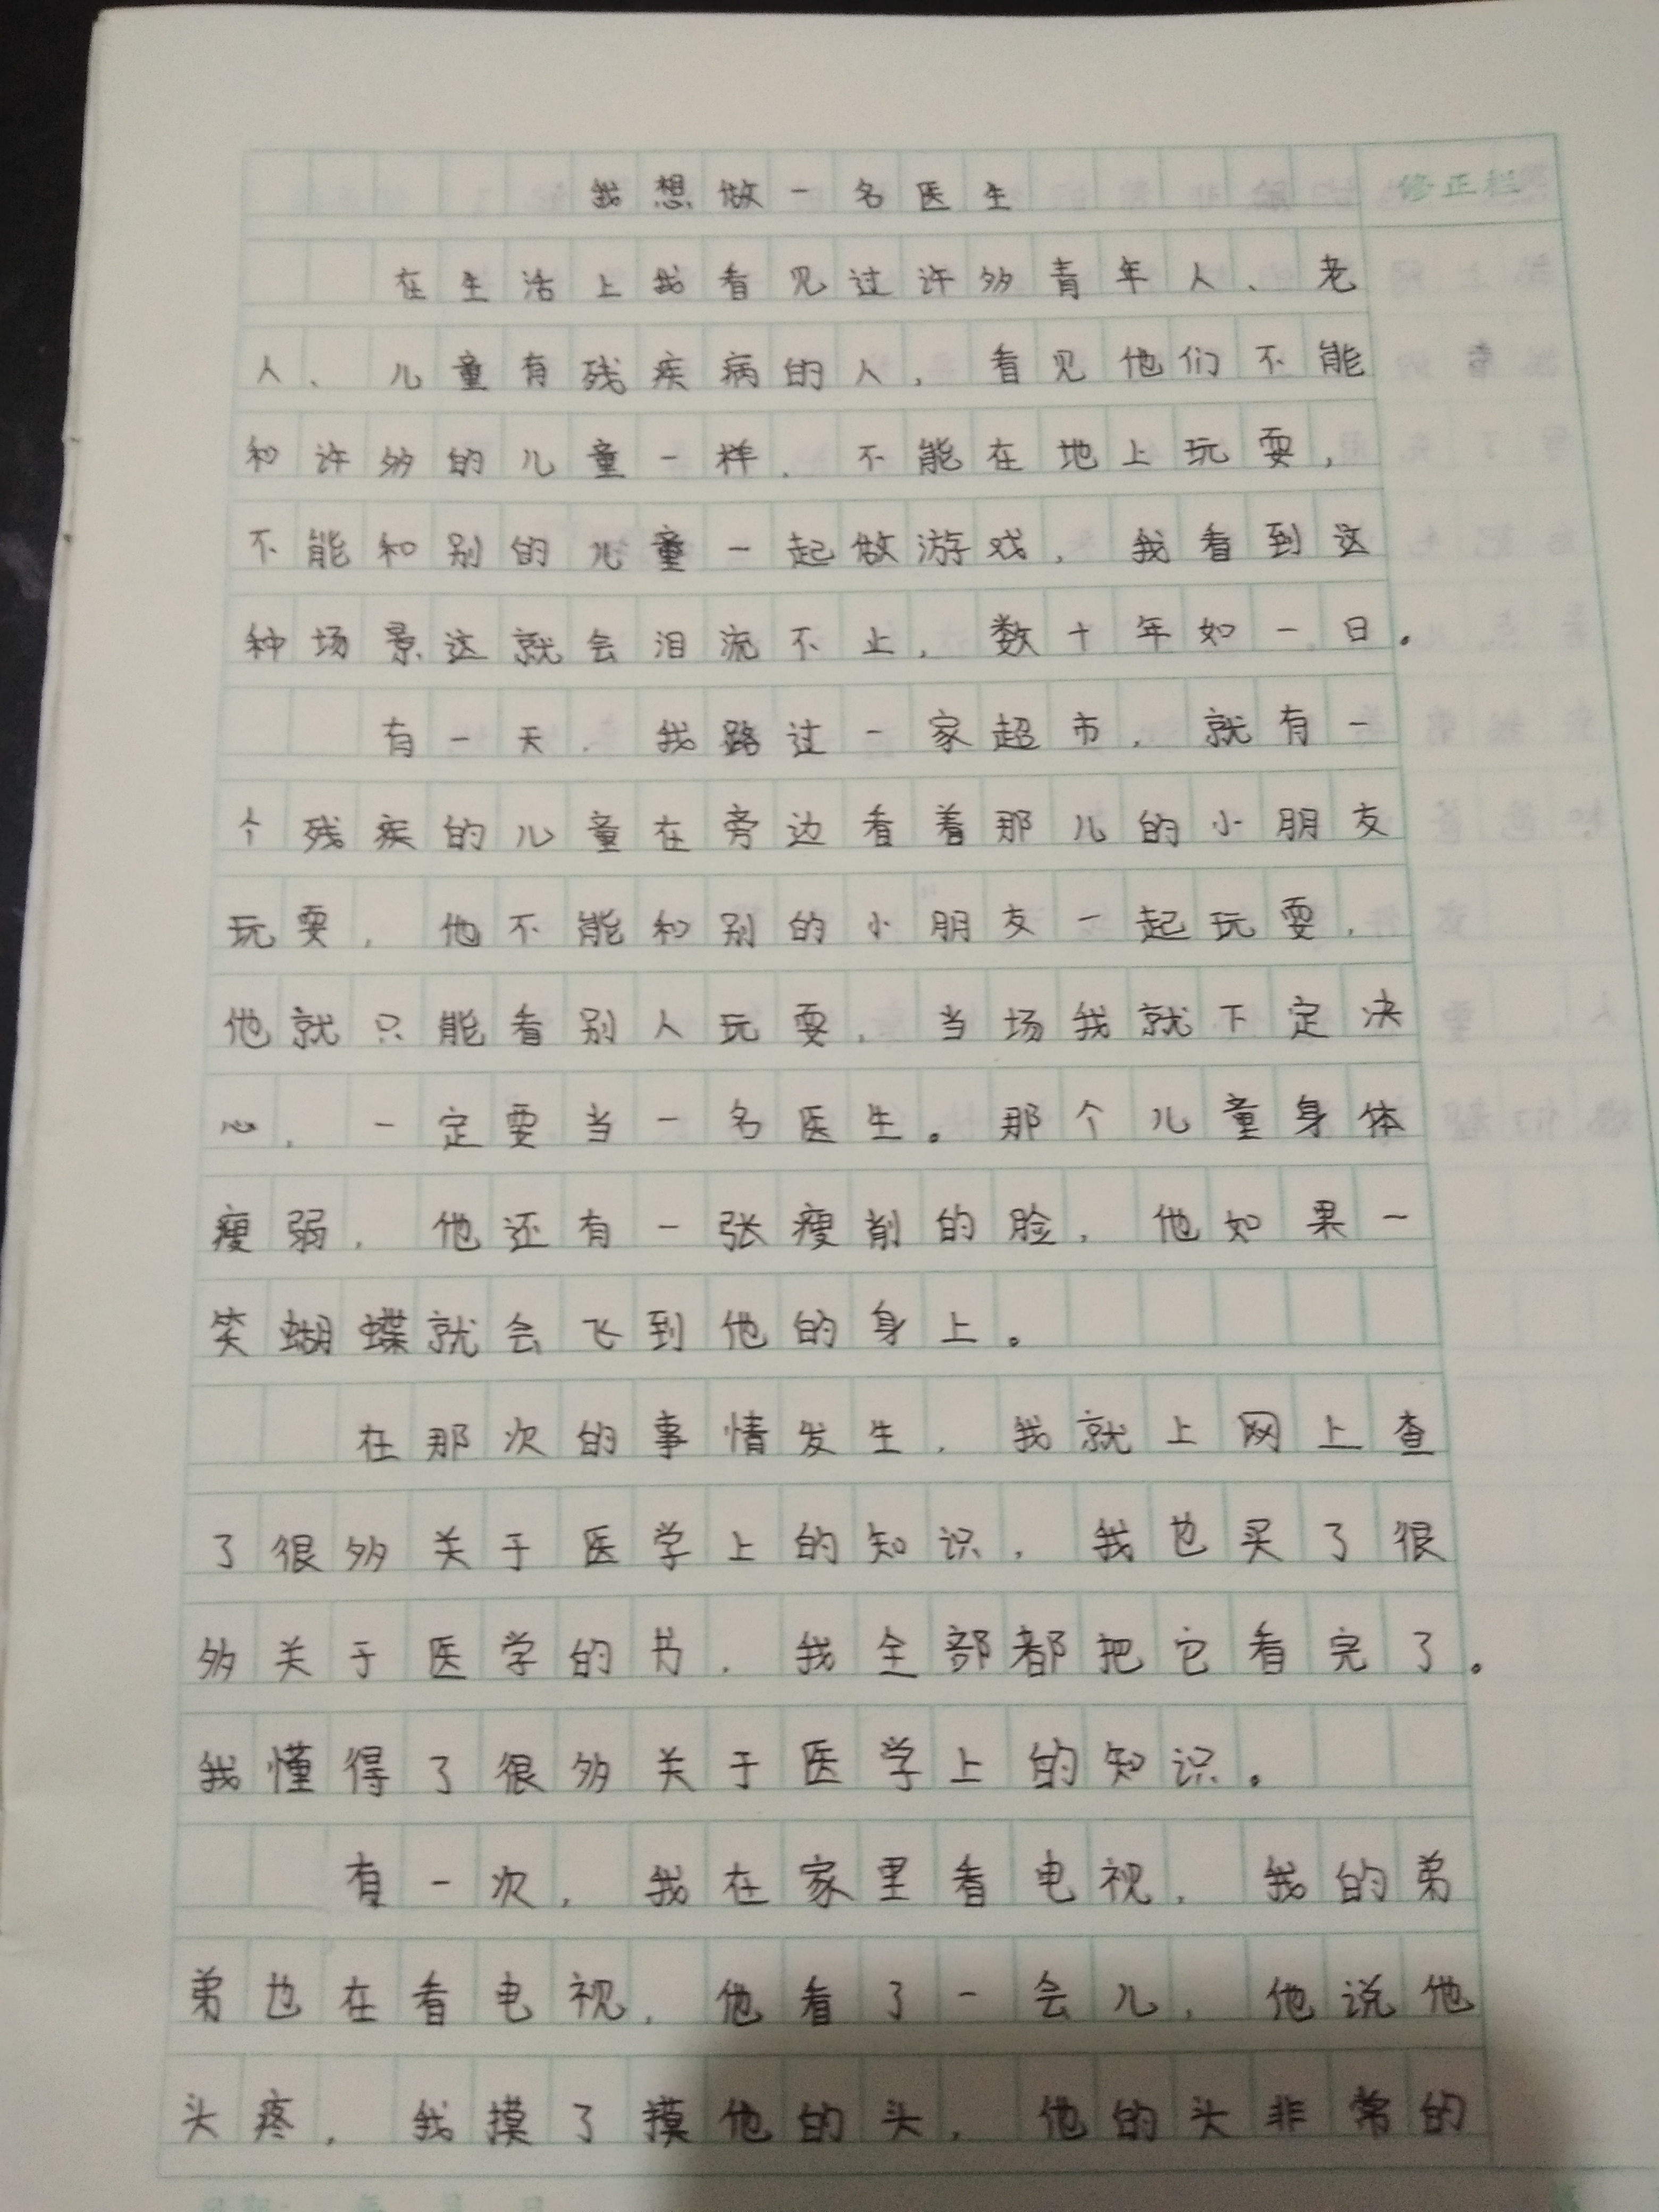 我想做一名医生
修正栏
在生活上我看见过许多青年人、老
人、儿童有残疾病的人，看见他们不能
和许多的儿童一样，不能在地上玩耍，
不能和别的儿童一起做游戏，我看到这
种场景这就会泪流不止，数十年如一日。
有一天，我路过一家超市，就有一
个残疾的儿童在旁边看着那儿的小朋友
玩耍，他不能和别的小朋友一起玩耍，
他就只能看别人玩耍，当场我就下定决
心，一定要当一名医生。那个儿童身体
瘦弱，他还有一张瘦削的脸，他如果一
笑蝴蝶就会飞到他的身上。
在那次的事情发生，我就上网上查
了很多关于医学上的知识，我也买了很
多关于医学的书，我全部都把它看完了。
我懂得了很多关于医学上的知识。
有一次，我在家里看电视，我的弟
弟也在看电视，他看了一会儿，他说他
头疼，我摸了摸他的头，他的头非常的